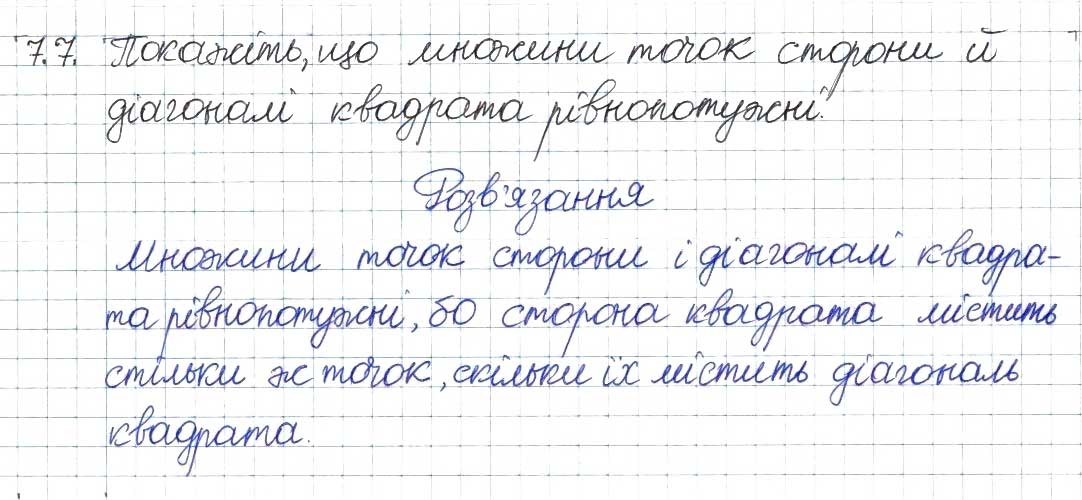 7.7. Покажіть, що множини точок сторони й
діагоналі квадрата рівнопотужні.
Розв'язання
Множини точок сторони і діагоналі квадра-
та рівнопотужні, бо сторона квадрата містить
стільки ж точок, скільки їх містить діагональ
квадрата.